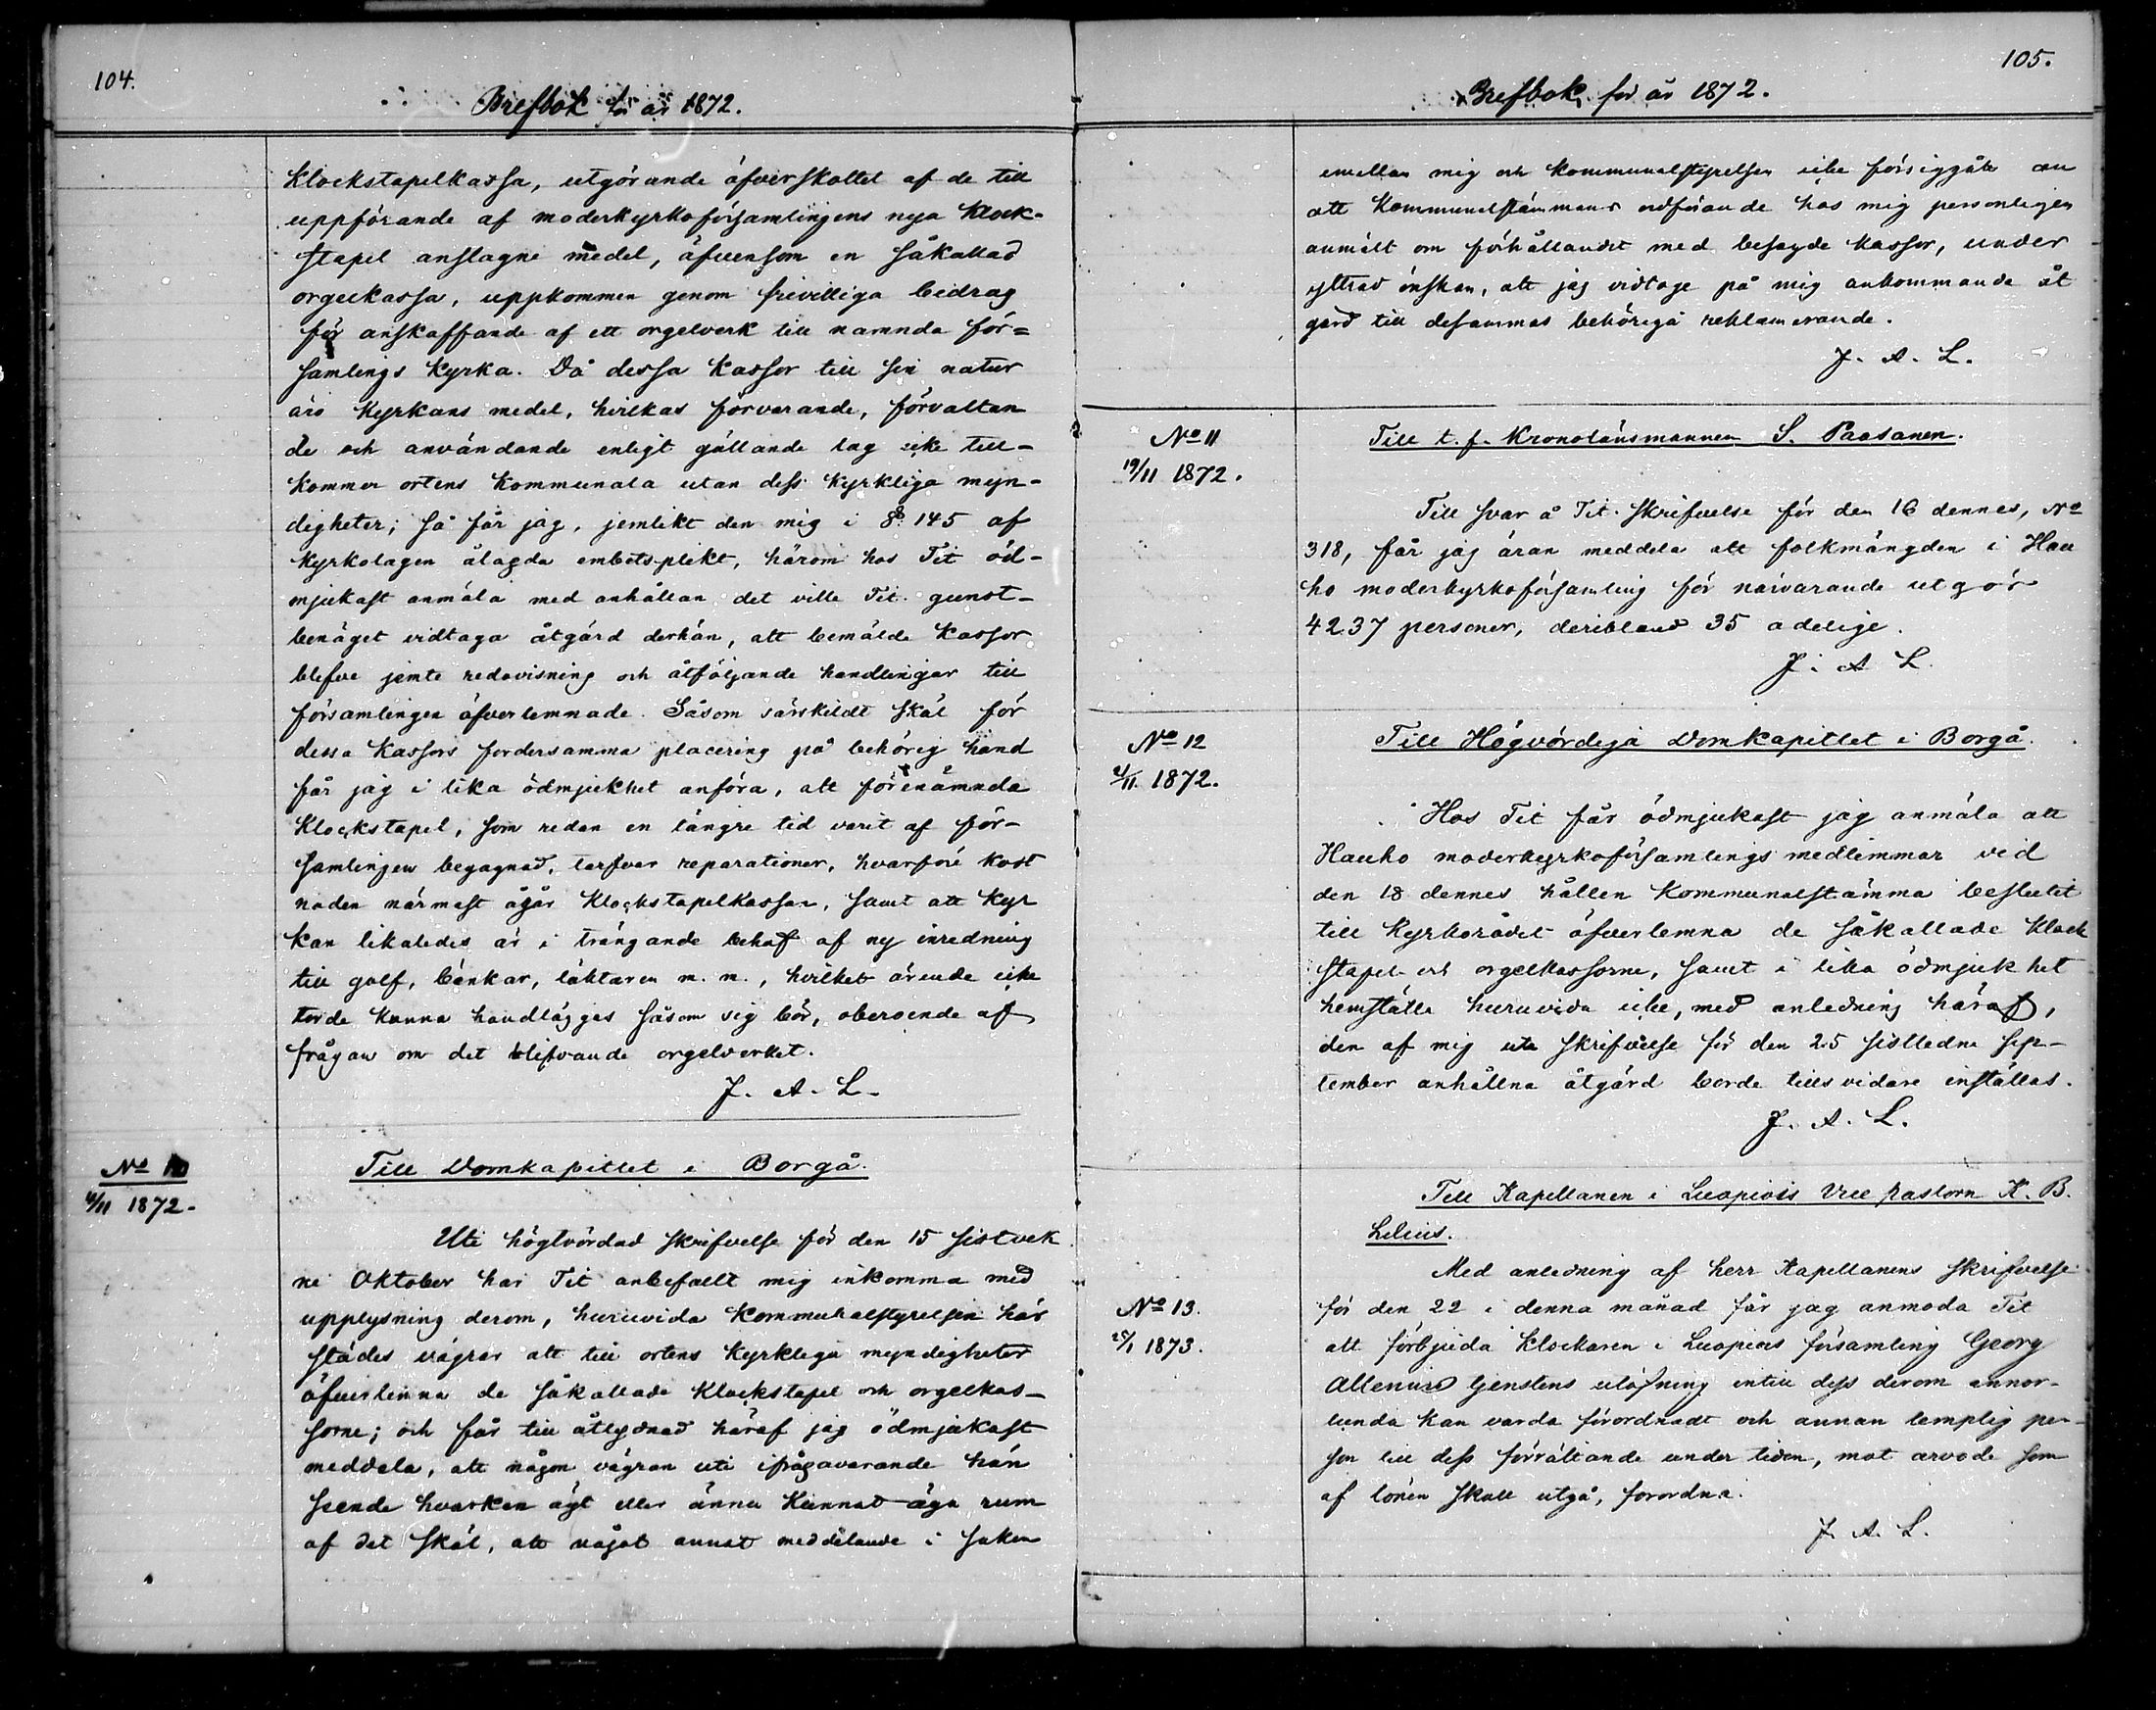 104.
Brefbok för år 1872.
Klockstapelkassa, utgörande öfverskottet af de till
uppförande af moderkyrkoförsamlingens nya Klock-
stapel anslagne medel, äfvensom en såkallad
orgelkassa, uppkommen genom frivilliga bidrag
för anskaffande af ett orgelverk till namnda för-
samlings Kyrka. Då dessa Kassor till sin natur
äro Kyrkans medel, hvilkas förvarande, förvaltan
de och användande enligt gällande lag icke till-
kommer ortens Kommunala utan dess Kyrkliga myn-
digheter; så får jag, jemlikt den mig i § 145 af
Kyrkolagen ålagda embetsplikt, härom hos Tit öd-
mjukast anmäla med anhållan det ville Tit. gunst-
benäget vidtaga åtgärd derhän, att bemälde Kassor
blefve jemte redovisning och åtföljande handlingar till
församlingen öfverlemnade. Såsom särskildt skäl för
dessa Kassors fordersamma placering på behörig hand
får jag i lika ödmjukhet anföra, att förenämnda
Klockstapel, som redan en längre tid varit af för-
samlingen begagnad, tarfvar reparationer, hvarföre Kost
naden närmast åGår Klockstapelkassan, samt att Kyr
kan likaledes är i trängande behof af ny inredning
till golf, bänkar, läktaren m. m., hvilket ärende icke
torde kunna handlägges såsom sig bör, oberoende af
frågan om det blifvande orgelverket.
J. A. L.
No 10
1872.
Till Domkapitlet i Borgå.
Uti högtvördad skrifvelse för den 15 sistvek
ne Oktober har Tit anbefallt mig inkomma med
upplysning derom, huruvida Kommunalstyrelsen här
städes vägrar att till ortens Kyrkliga myndigheter
öfverlemna de såkallade Klockstapel och orgelkas-
sorne; och får till åtlydnad häraf jag ödmjukast
meddela, att någon vägran uti ifrågavarande hän
seende hvarken ägt eller ännu Kunnat äga rum
af det skäl, att något annat meddelande i saken
105.
Brefbok för år 1872.
emellan mig och Kommunalstyrelsen icke försiggått än
att Kommunalstämmans ordförande hos mig personligen
anmält om förhållandet med besagde Kassor, under
yttrad önskan, att jag vidtoge på mig ankommande åt
gärd till desammas behöriga reklamerande.
J. A. L.
No 11
19/11 1872.
Till t. f. Kronolänsmannen S. Paasanen.
Till svar å Tit. skrifvelse för den 16 dennes, No
318, får jag äran meddela att folkmängden i Hau
ho moderkyrkoförsamling för närvarande utgör
4237 personer, deribland 35 adelige.
J. A L
No 12
1872.
Till Högvördiga Domkapitlet i Borgå.
Hos Tit får ödmjukast jag anmäla att
Hauho moderkyrkoförsamlings medlemmar vid
den 18 dennes hållen Kommunalstämma beslutit
till Kyrkorådet öfverlemna de såkallade Klock
stapel- och orgelkassorne, samt i lika ödmjukhet
hemställa huruvida icke, med anledning häraf,
den af mig uti skrifvelse för den 25 sistledne Sep-
tember anhållna åtgärd borde tillsvidare inställas.
J. A. L.
Till Kapellanen i Luopiois Vice pastorn K. B.
Lilius.
No 13.
1873.
Med anledning af herr Kapellanens skrifvelse
för den 22 i denna månad får jag anmoda Tit
att förbjuda Klockaren i Luopiois församling Georg
Allenius tjenstens utöfning intill dess derom annor-
lunda kan varda förordnadt och annan lemplig per-
son till dess förvaltande under tiden, mot arvode som
af lönen skall utgå, förordna.
J. A. L.